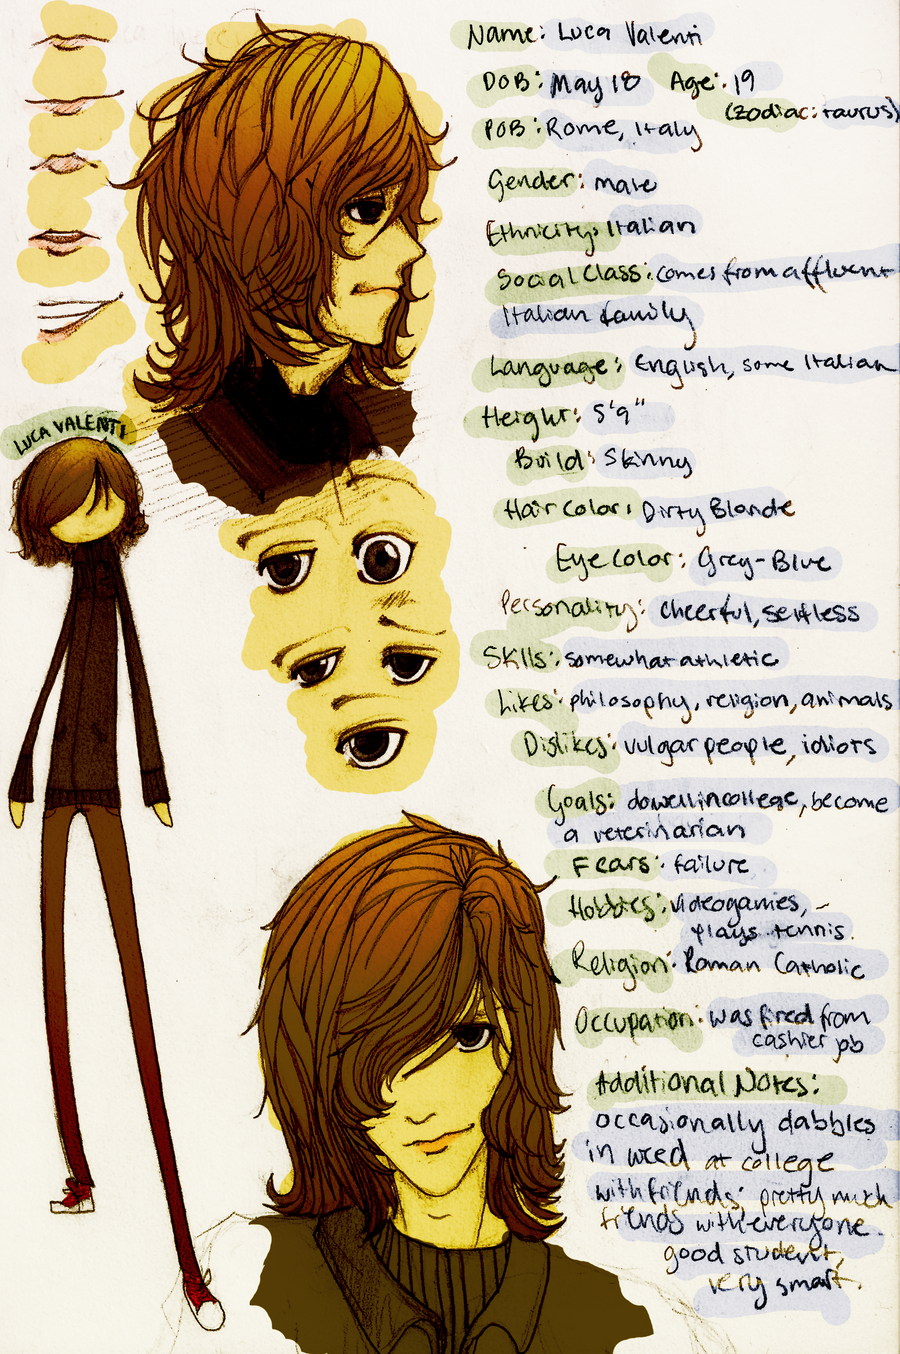 Name: Luca Valenti
DOB: May 18 Age: 19
(zodiac: taurus)
POB: Rome, Italy
Gender: male
Ethnicity: Italian
Social Class: comes from affluent
Italian family
Language: English, some Italian
Height: 5'9"
Build: Skinny
Hair Color: Dirty Blonde
Eye Color: Grey-Blue
Personality: cheerful, selfless
Skills: somewhat athletic
Likes: philosophy, religion, animals
Dislikes: vulgar people, idiots
Goals: do well in college, become
a veterinarian
Fears: failure
Hobbies: videogames,
plays tennis.
Religion: Roman Catholic
Occupation: was fired from
cashier job
Additional Notes:
occasionally dabbles
in weed at college
with friends; pretty much
friends with everyone.
good student,
very smart.
LUCA VALENTI